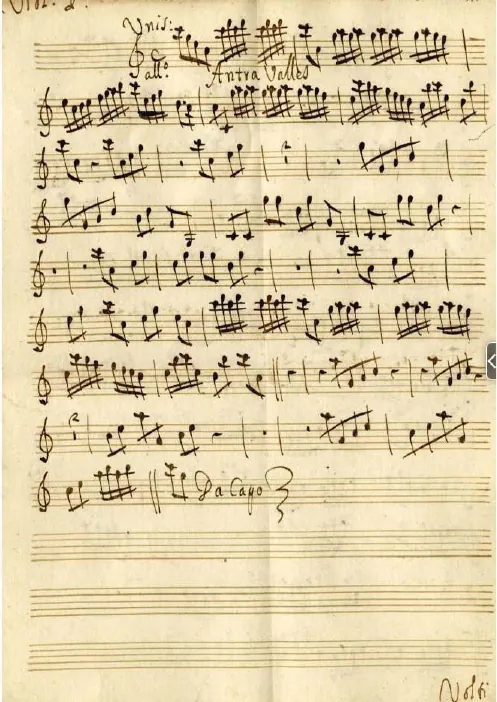 Unis:
all.º Antra Valles
2
2
Da Capo
Volti